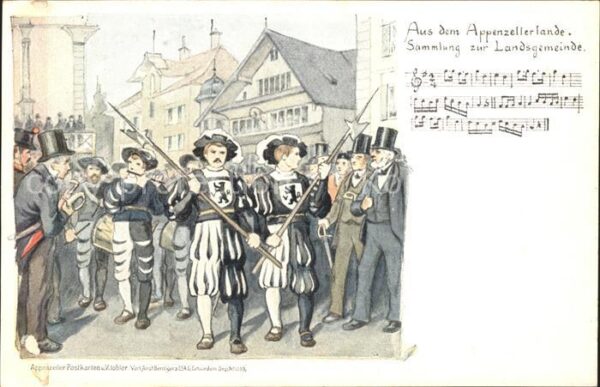 Aus dem Appenzellerlande.
Sammlung zur Landsgemeinde.
Appenzeller Postkarten v. V. Tobler